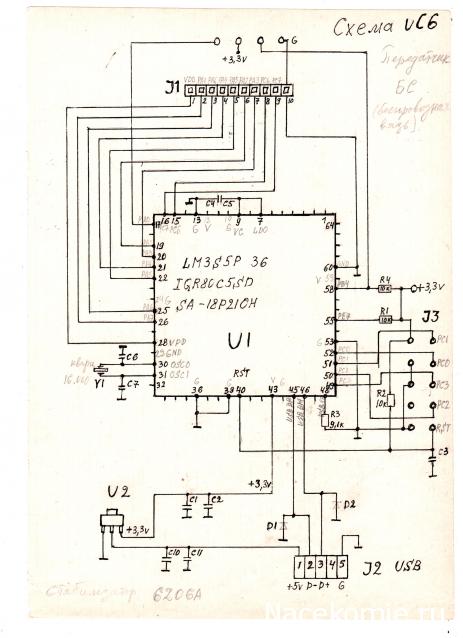 Схема UC6
G
+3,3V
Передатчик
БС
(беспроводная
J1
VDD PA1 PA2 PA4 PA5 PA2 PA3 PC6 PC7
1 2 3 4 5 6 7 8 9 10
C4 C5
16 15 13 9 7 1
G V VC LDO
64
LM3S5P36
IQR80C5SD
SA-18P210H
U1
19
20
21
22
25
26
28 VDD
29 GND
30 OSC0
31 OSC1
32
60 GND
58 PB4
55 PE7
53
52
51
50
49
G
PC0
PC1
PC2
PC3
R4
10к
+3,3V
R1
10к
J3
PC1
PC0
PC3
PC2
RST
R2
10к
C3
C6
кварц
16.000
Y1
C7
G RST V G
38 39 40 43 45 46 48
R3
9,1к
+3,3V
U2
C1 C2
+3,3V
D1
D2
C10 C11
1 2 3 4 5
J2 USB
+5v D- D+ G
Стабилизатор 6206A
Nacekomie.ru